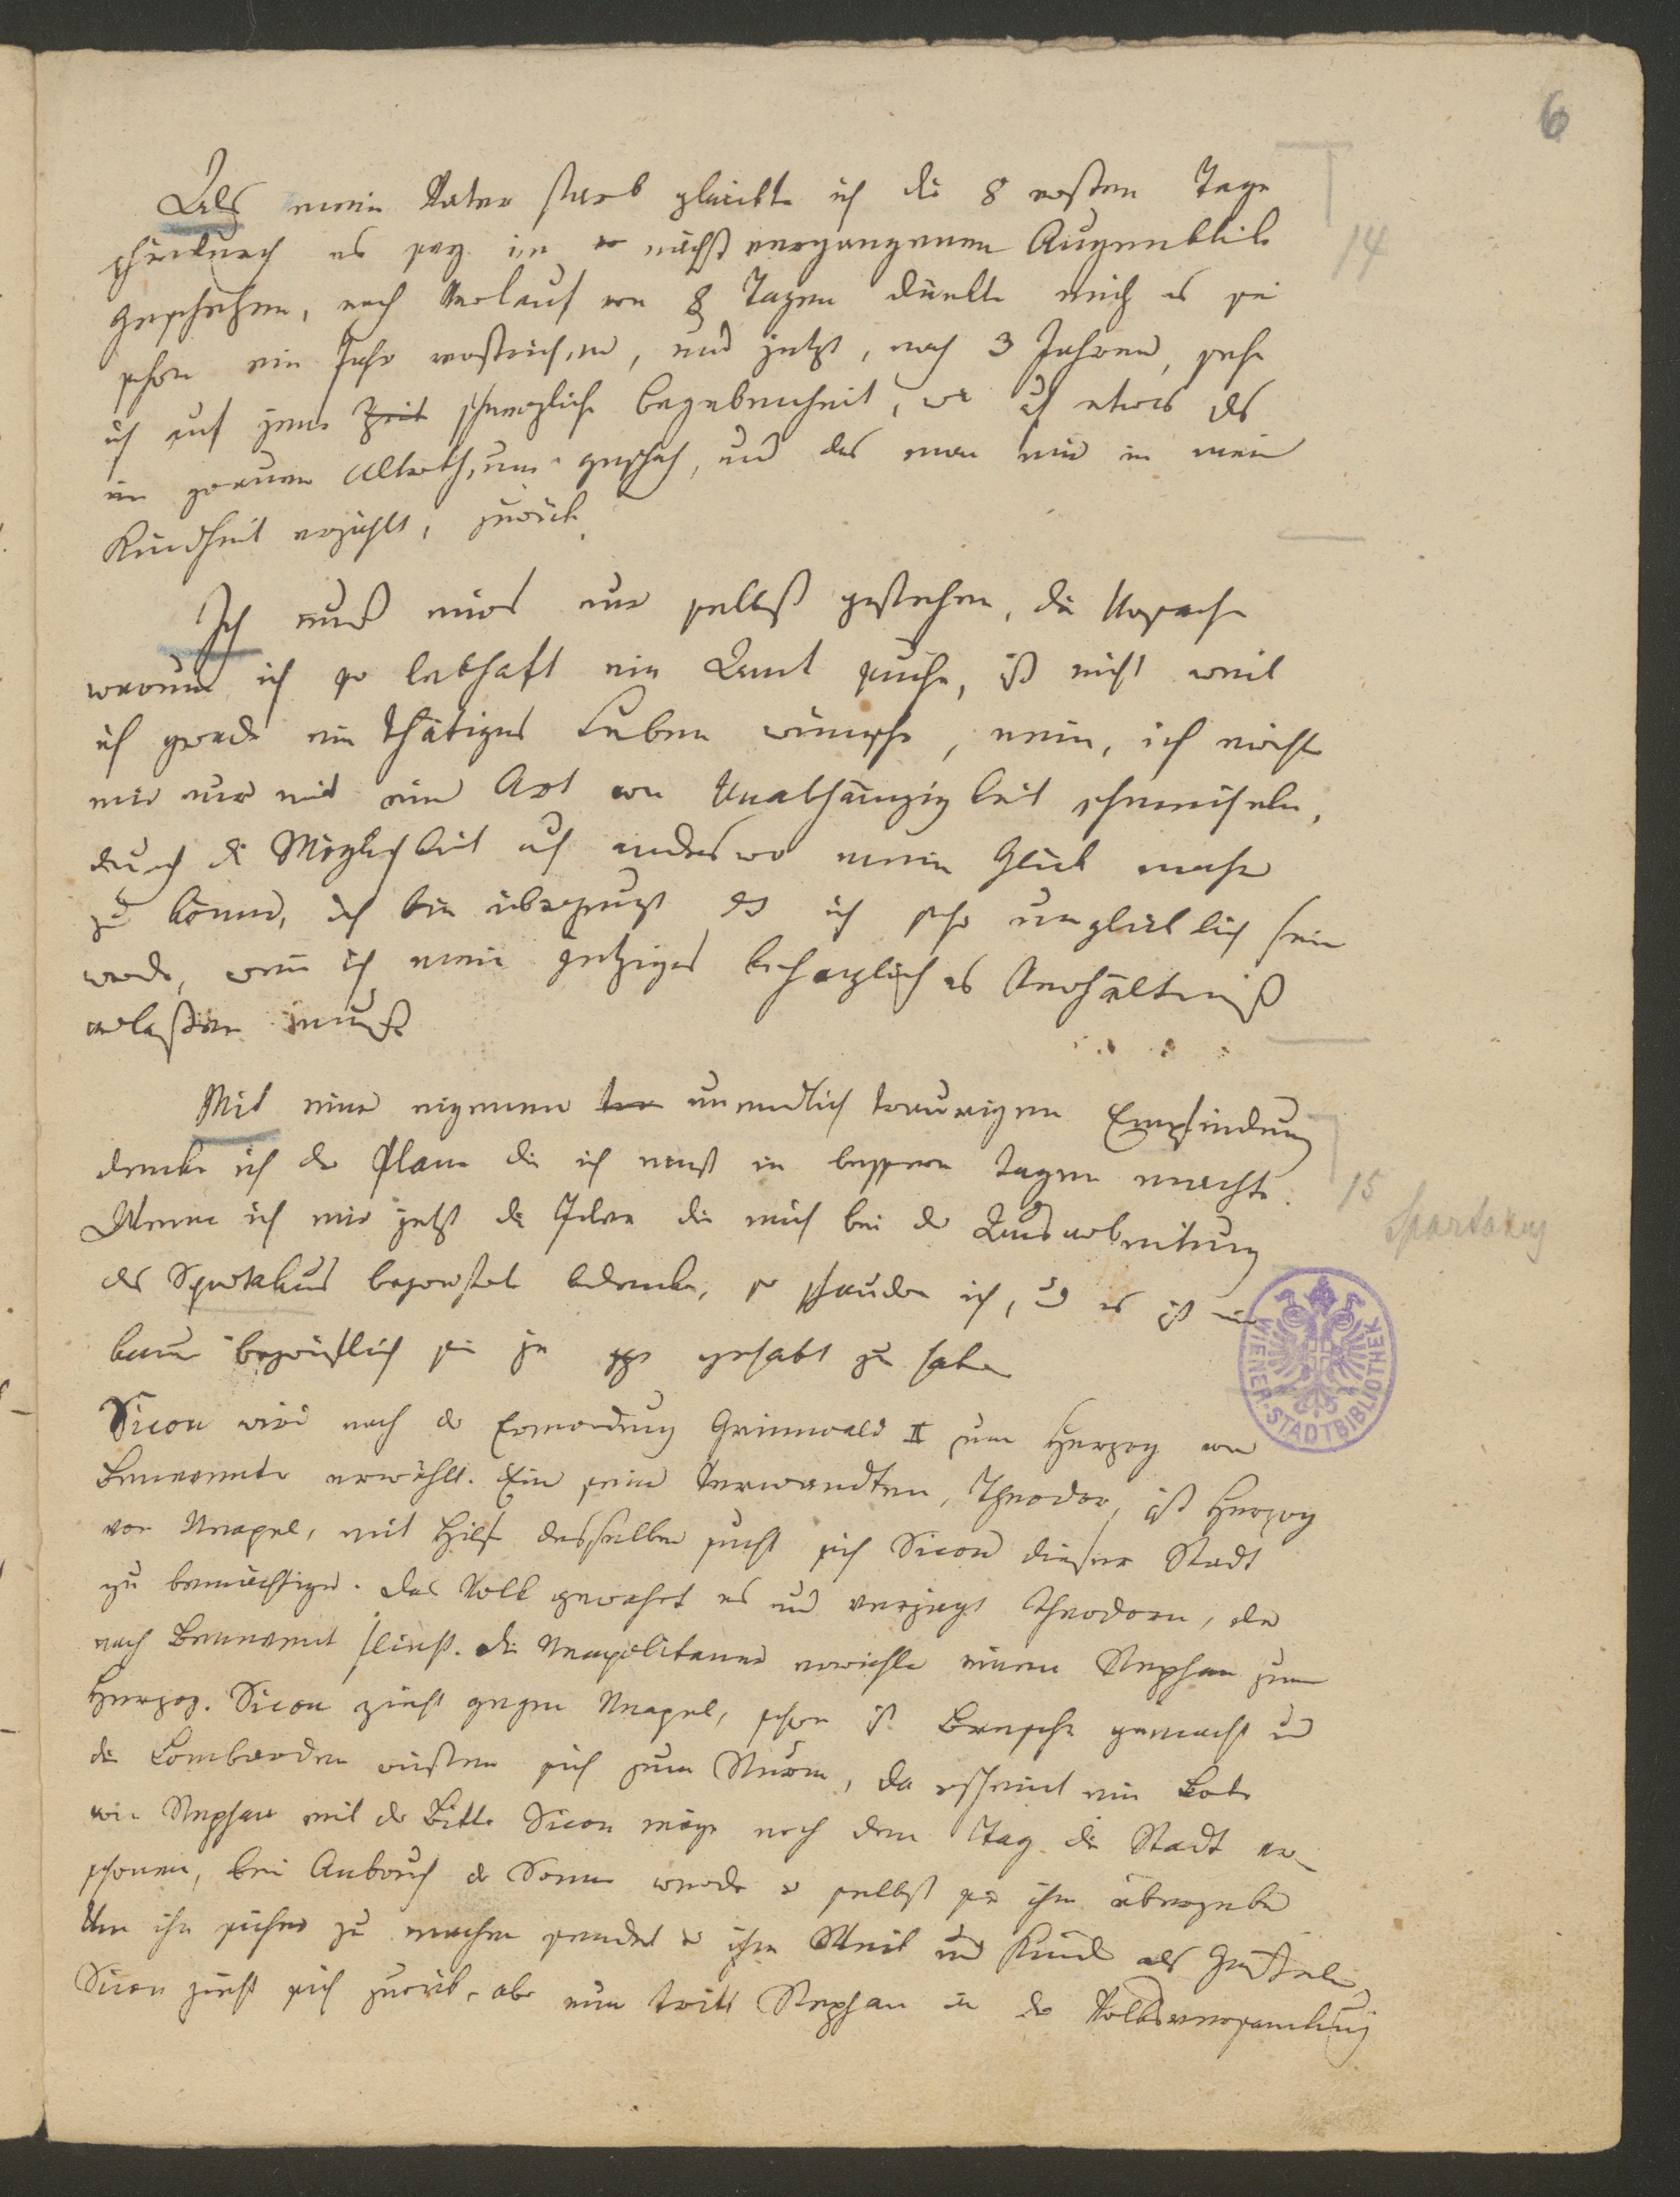 6
Als mein Vater starb glaubte ich die 8 ersten Tage
hindurch es sey im nächst vergangenen Augenblik
geschehen, nach Verlauf von 8 Tagen dünkte mich es sei
schon ein Jahr verstrichen, und jetzt, nach 3 Jahren, sehe
ich auf jene Zeit schmerzliche Begebenheit, wie auf etwas das
im grauen Alterthume geschah, und das man mir in meiner
Kindheit erzählt, zurück.
14
Ich muß mirs nur selbst gestehen, die Ursache
warum ich so lebhaft ein Amt suche, ist nicht weil
ich gerade ein thätiges Leben wünsche, nein, ich möchte
mir nur mit einer Art von Unabhängigkeit schmeicheln,
durch die Möglichkeit auch anderswo mein Glück machen
zu können, ich bin überzeugt daß ich sehr unglücklich sein
werde, wenn ich mein jetziges behagliches Verhältniß
verlassen muß
Mit einer eigenen unendlich traurigen Empfindung
denke ich der Plane die ich einst in bessern Tagen machte.
Wenn ich mir jetzt die Ideen die mich bei der Ausarbeitung
des Spartakus begeistert bedenke, so schaudere ich, und es ist mir
kaum begreiflich sie je gehabt zu haben
15
Spartakus
WIENER STADTBIBLIOTHEK
Sicon wird nach der Ermordung Grimoald II zum Herzog von
Benevento erwählt. Ein seiner Verwandten, Theodor, ist Herzog
von Neapel, mit Hilfe desselben sucht sich Sicon dieser Stadt
zu bemächtigen. Das Volk gewahrt es und verjagt Theodorn, der
nach Benevent flieht. Die Neapolitaner erwählen einen Stephan zum
Herzog. Sicon zieht gegen Neapel, schon ist Bresche gemacht und
die Lombarden rüsten sich zum Sturm, da erscheint ein Bote
von Stephan mit der Bitte Sicon möge noch den Tag die Stadt ver-
schonen, bei Anbruch der Sonne werde er selbst sie ihm übergeben
Um ihn sicher zu machen sendet er ihm Weib und Kinder als Geißeln,
Sicon zieht sich zurück, aber nun tritt Stephan in der Volksversamlung